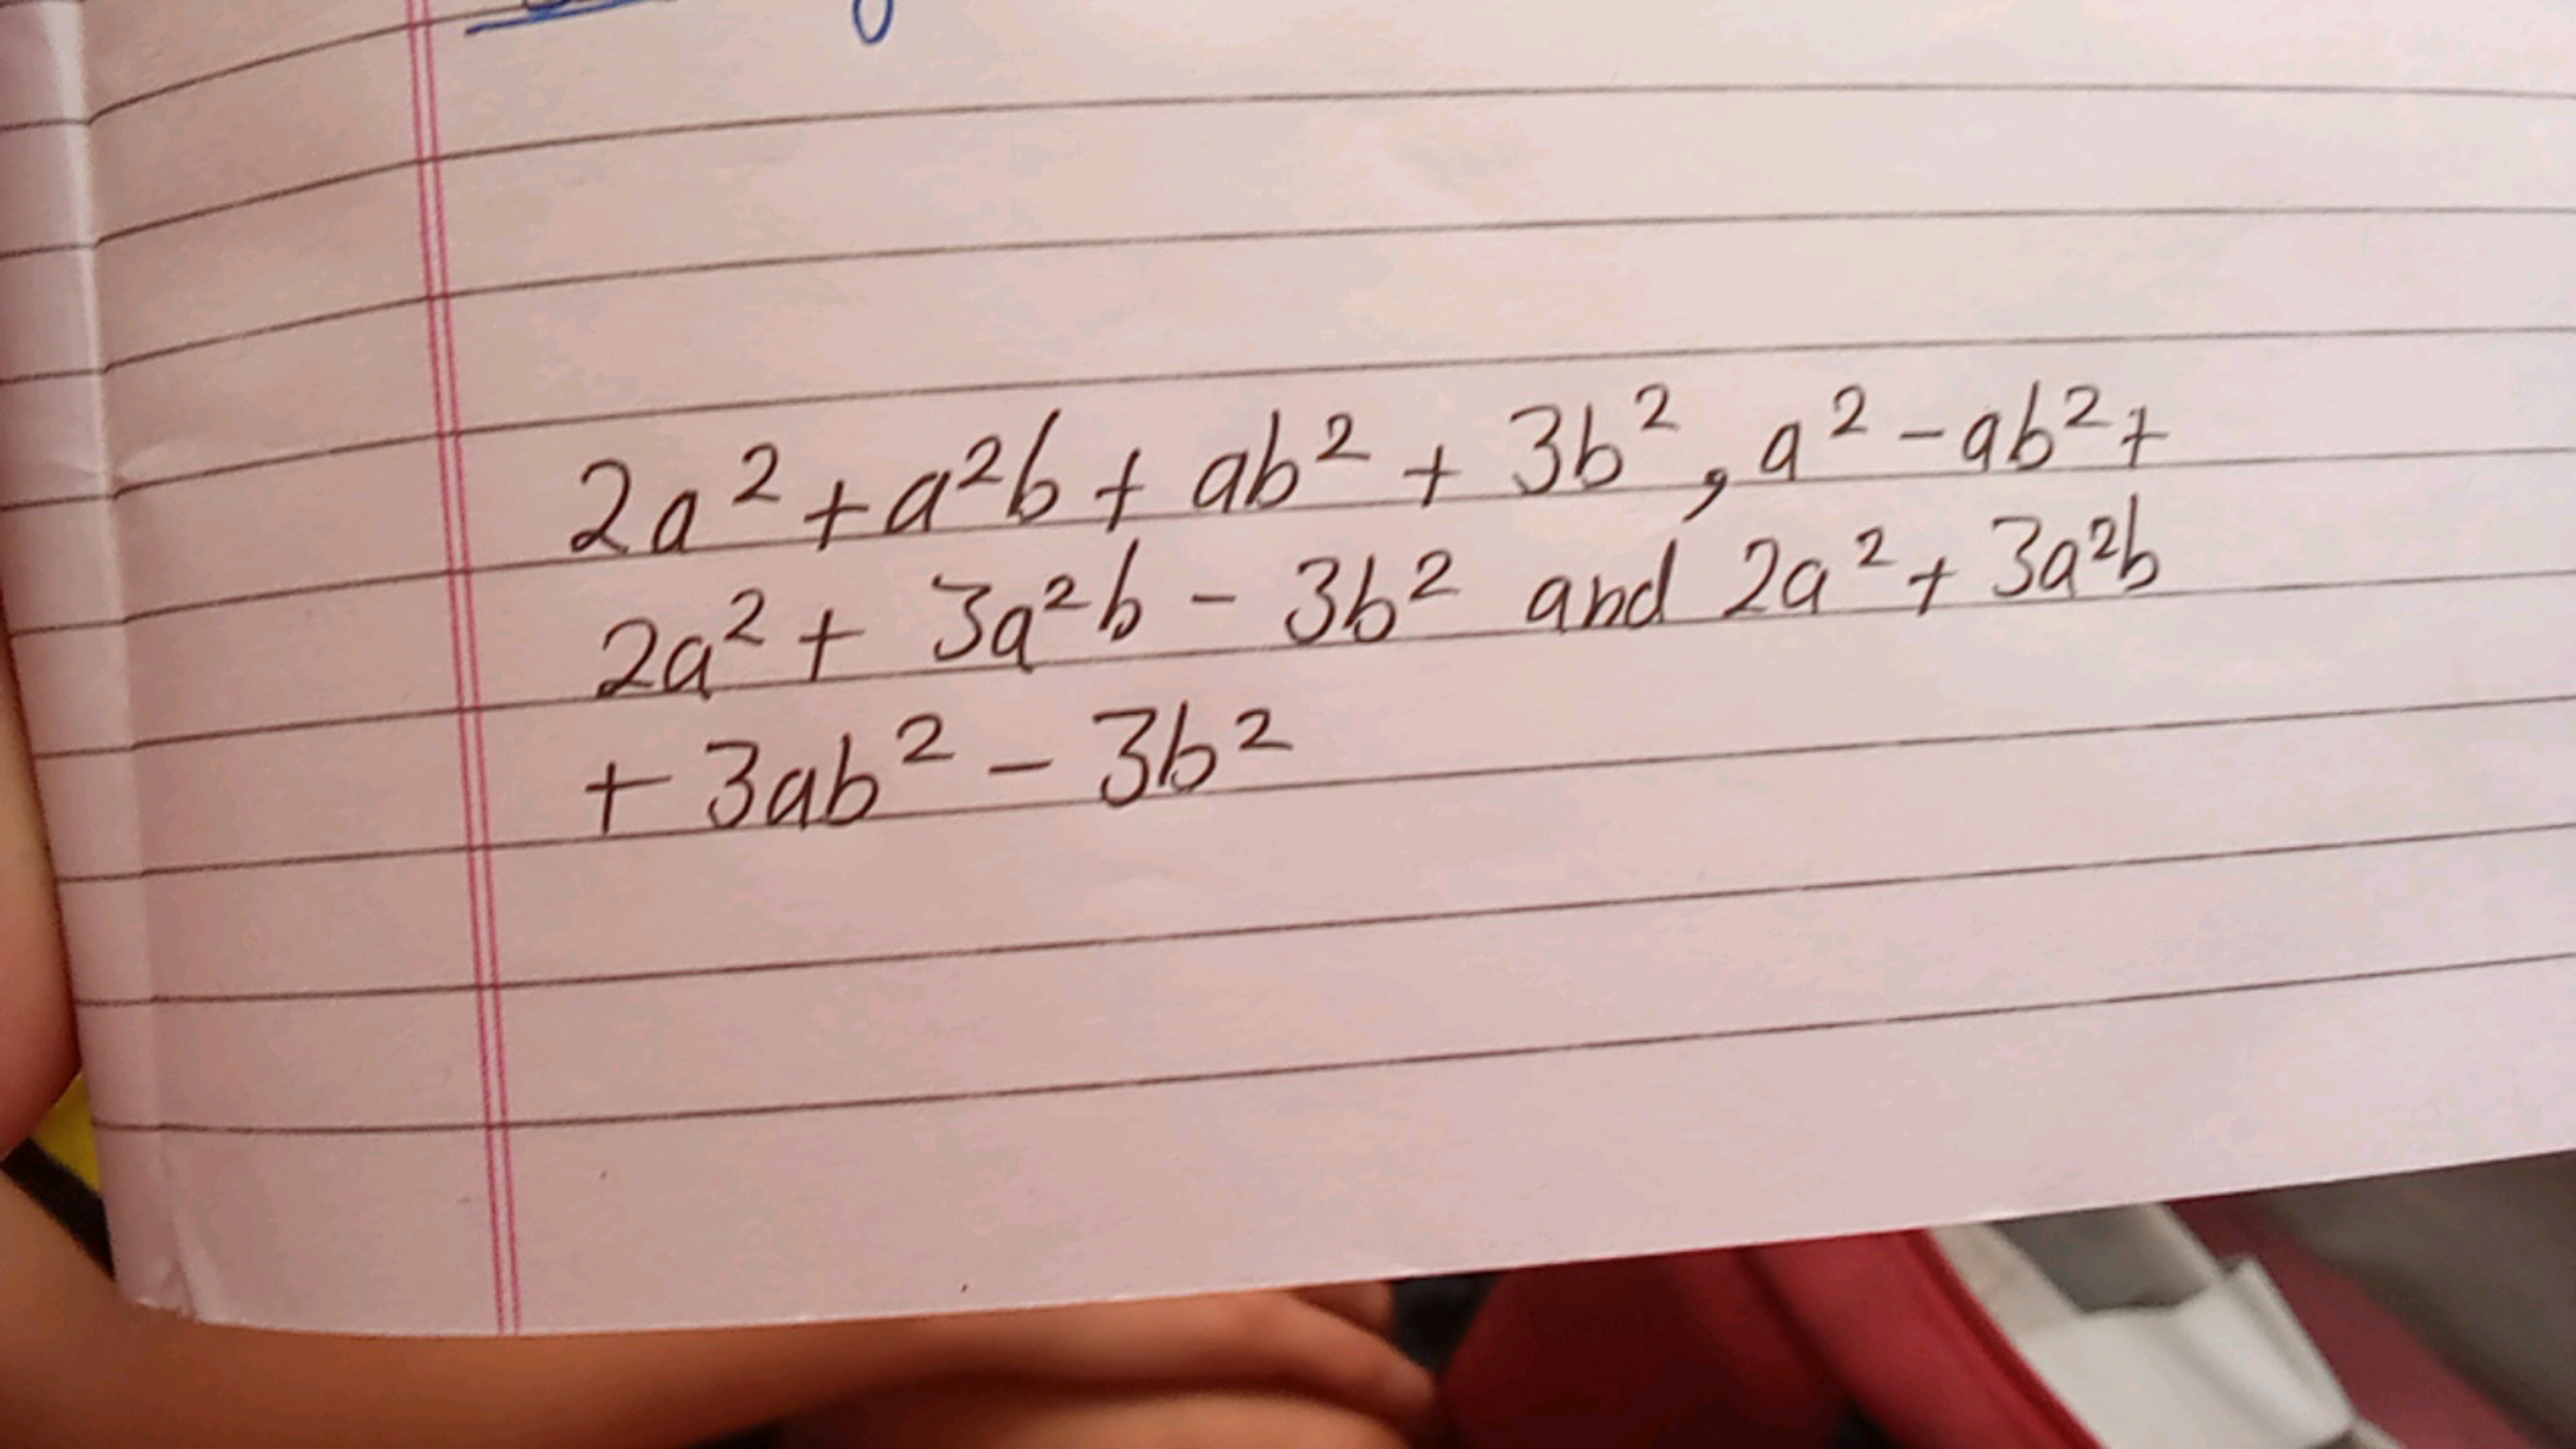 2a² + a²b + ab² + 3b², a² - ab² +
2a² + 3a²b - 3b² and 2a² + 3a²b
+ 3ab² - 3b²